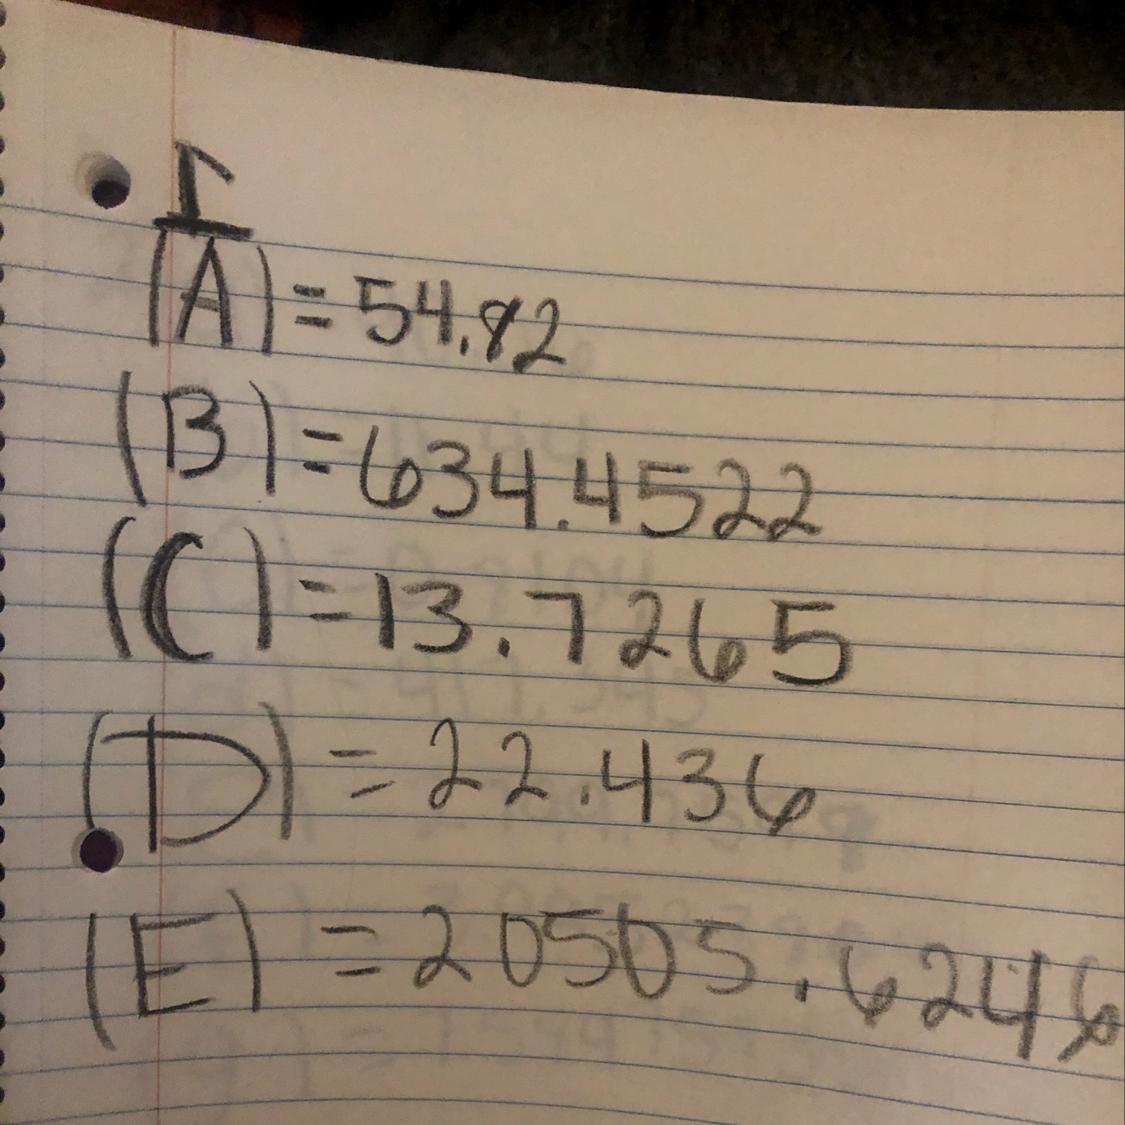 I
(A) = 54.82
(B) = 634.4522
(C) = 13.7265
(D) = 22.436
(E) = 20505.6246